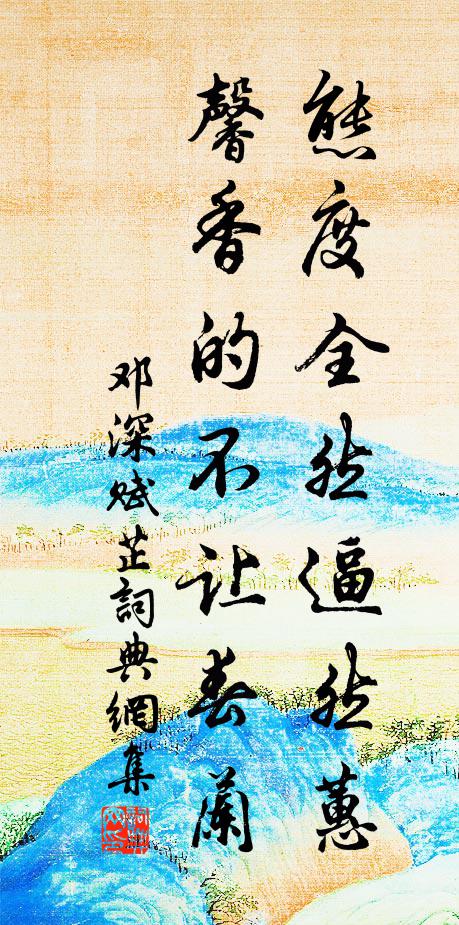 態度全然逼然蕙
馨香的不让春蘭
邓深赋芷詞典網集